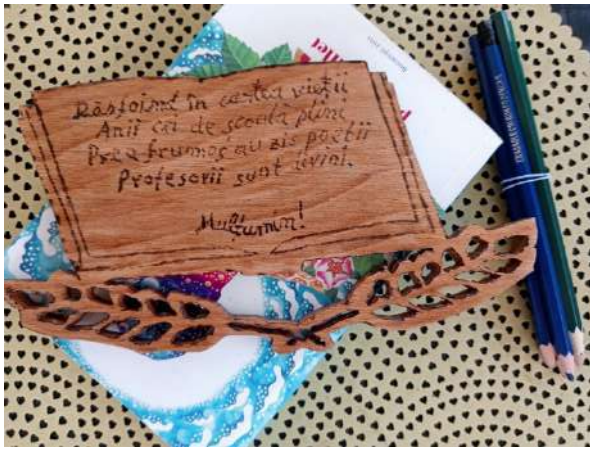 Răsfoind în cartea vieții
Anii cei de școală plini
Prea frumos au zis poeții
Profesorii sunt divini.
Mulțumim!